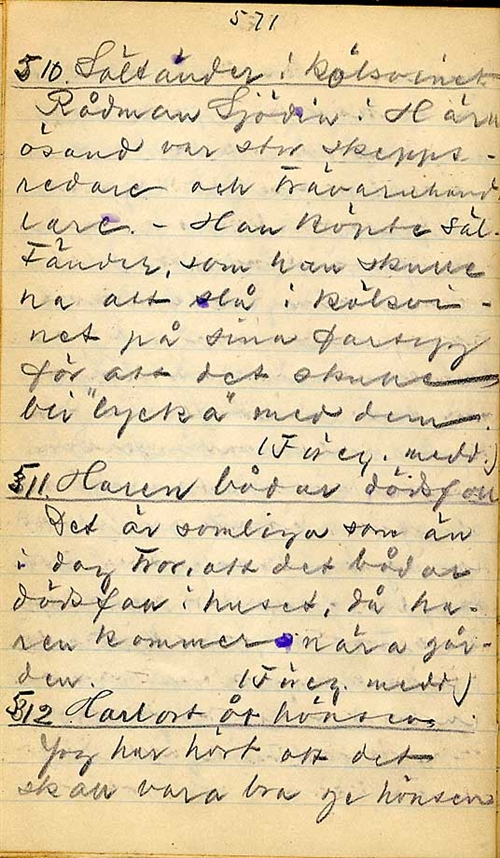 571
510. Sältänder i kölsvinet
Rådman Sjödin i Härn
ösand var stor skepps-
redare och trävaruhand
lare. - Han köpte säl-
tänder, som han skulle
ha att slå i kölsvi-
net på sina fartyg
för att det skulle
bli "lycka" med dem.
(Föreg. medd.)
511. Haren bådar dödsfall
Det är somliga som än
i dag tror, att det bådar
dödsfall i huset, då ha-
ren kommer nära går-
den. (Föreg. medd)
512 Harlort åt hönsen.
Jag har hört att det
skall vara bra ge hönsen